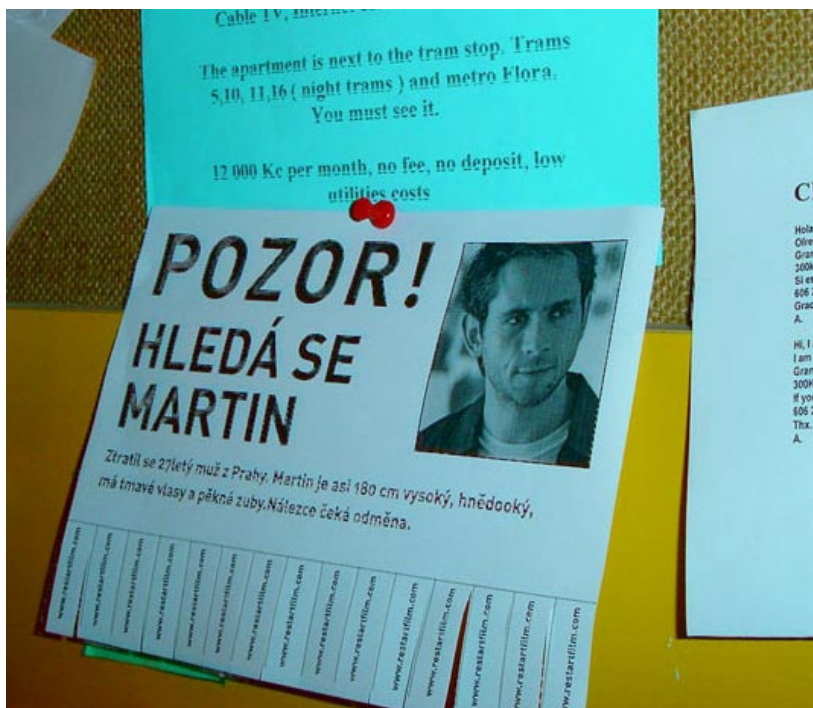 Cable TV,
The apartment is next to the tram stop. Trams
5,10, 11,16 ( night trams ) and metro Flora.
You must see it.
12 000 Kc per month, no fee, no deposit, low
utilities costs
POZOR!
HLEDÁ SE
MARTIN
Ztratil se 27letý muž z Prahy. Martin je asi 180 cm vysoký, hnědooký,
má tmavé vlasy a pěkné zuby.Nálezce čeká odměna.
www.restartfilm.com
www.restartfilm.com
www.restartfilm.com
www.restartfilm.com
www.restartfilm.com
www.restartfilm.com
www.restartfilm.com
www.restartfilm.com
www.restartfilm.com
www.restartfilm.com
www.restartfilm.com
www.restartfilm.com
www.restartfilm.com
www.restartfilm.com
Hola
300K
Si
606
A.
Hi, I
I am
300K
If you
606
Thx.
A.